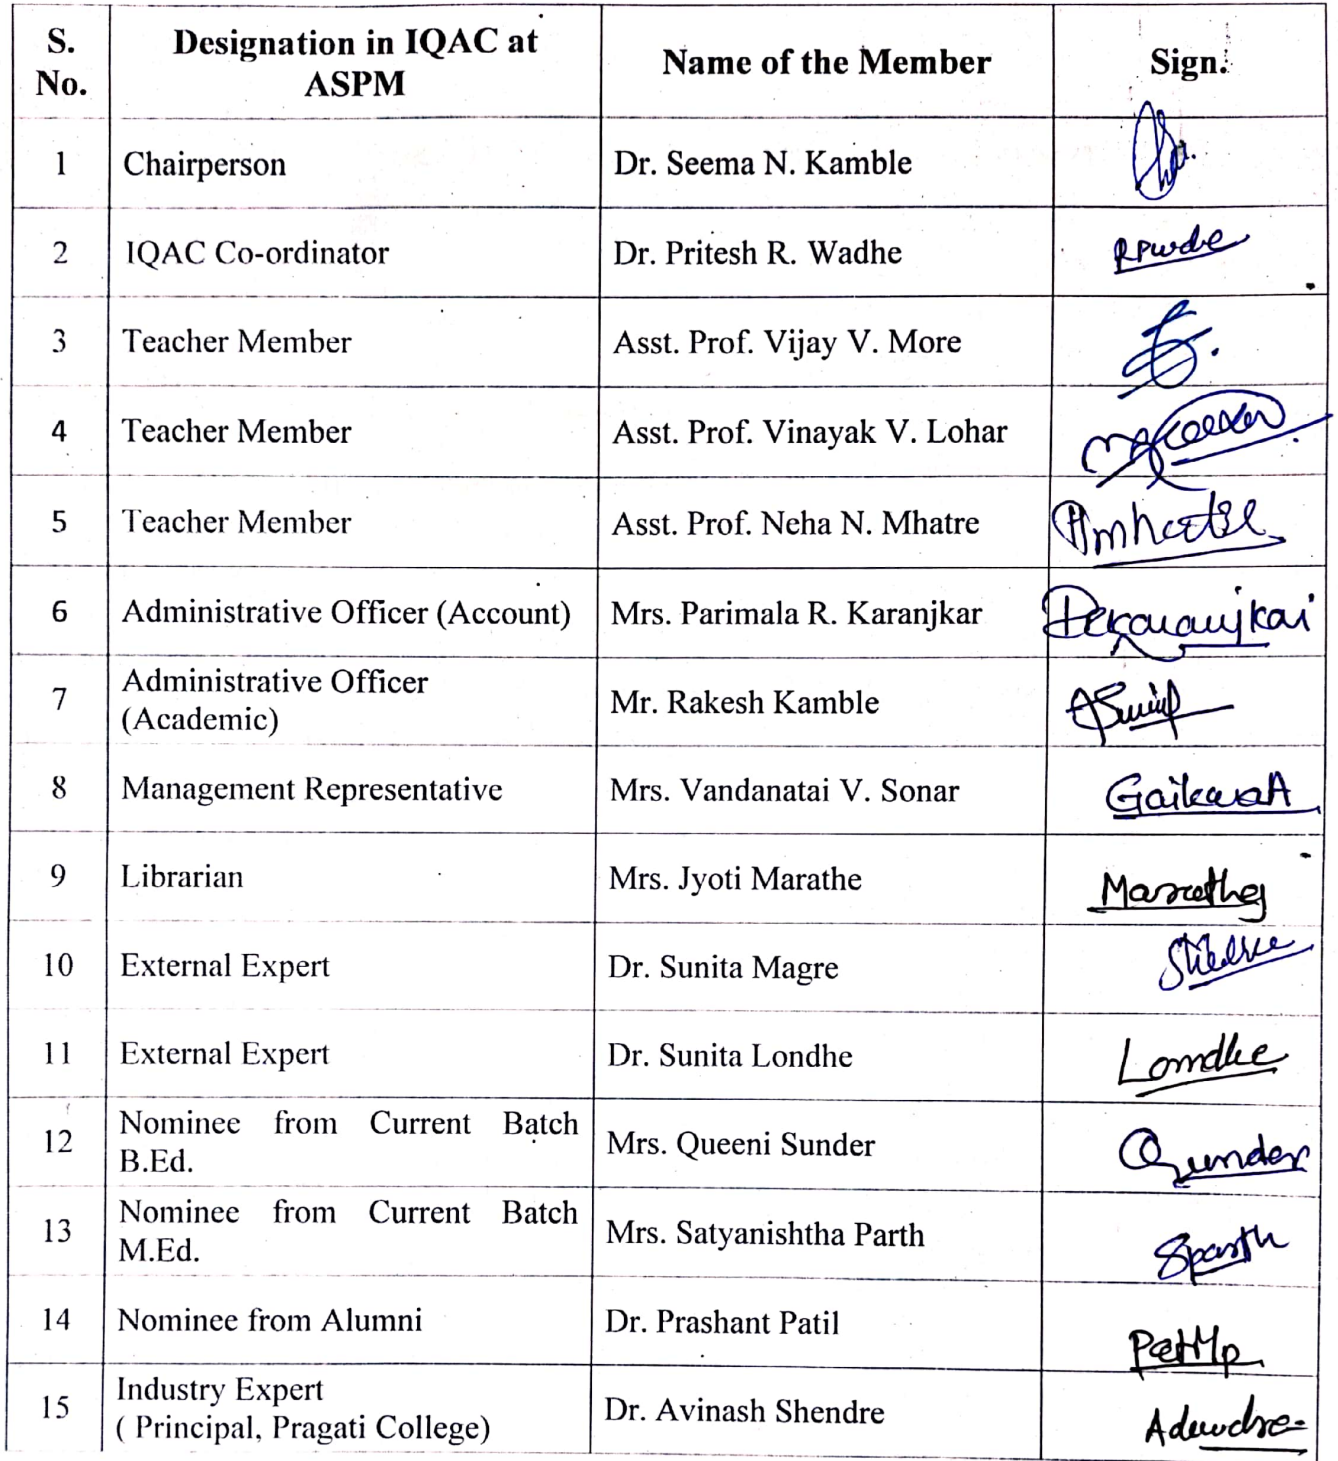 S. No. Designation in IQAC at ASPM Name of the Member Sign.
1 Chairperson Dr. Seema N. Kamble
2 IQAC Co-ordinator Dr. Pritesh R. Wadhe
3 Teacher Member Asst. Prof. Vijay V. More
4 Teacher Member Asst. Prof. Vinayak V. Lohar
5 Teacher Member Asst. Prof. Neha N. Mhatre
6 Administrative Officer (Account) Mrs. Parimala R. Karanjkar
7 Administrative Officer (Academic) Mr. Rakesh Kamble
8 Management Representative Mrs. Vandanatai V. Sonar
9 Librarian Mrs. Jyoti Marathe
10 External Expert Dr. Sunita Magre
11 External Expert Dr. Sunita Londhe Londhe
12 Nominee from Current Batch B.Ed. Mrs. Queeni Sunder Qsunder
13 Nominee from Current Batch M.Ed. Mrs. Satyanishtha Parth Sparth
14 Nominee from Alumni Dr. Prashant Patil
15 Industry Expert ( Principal, Pragati College) Dr. Avinash Shendre